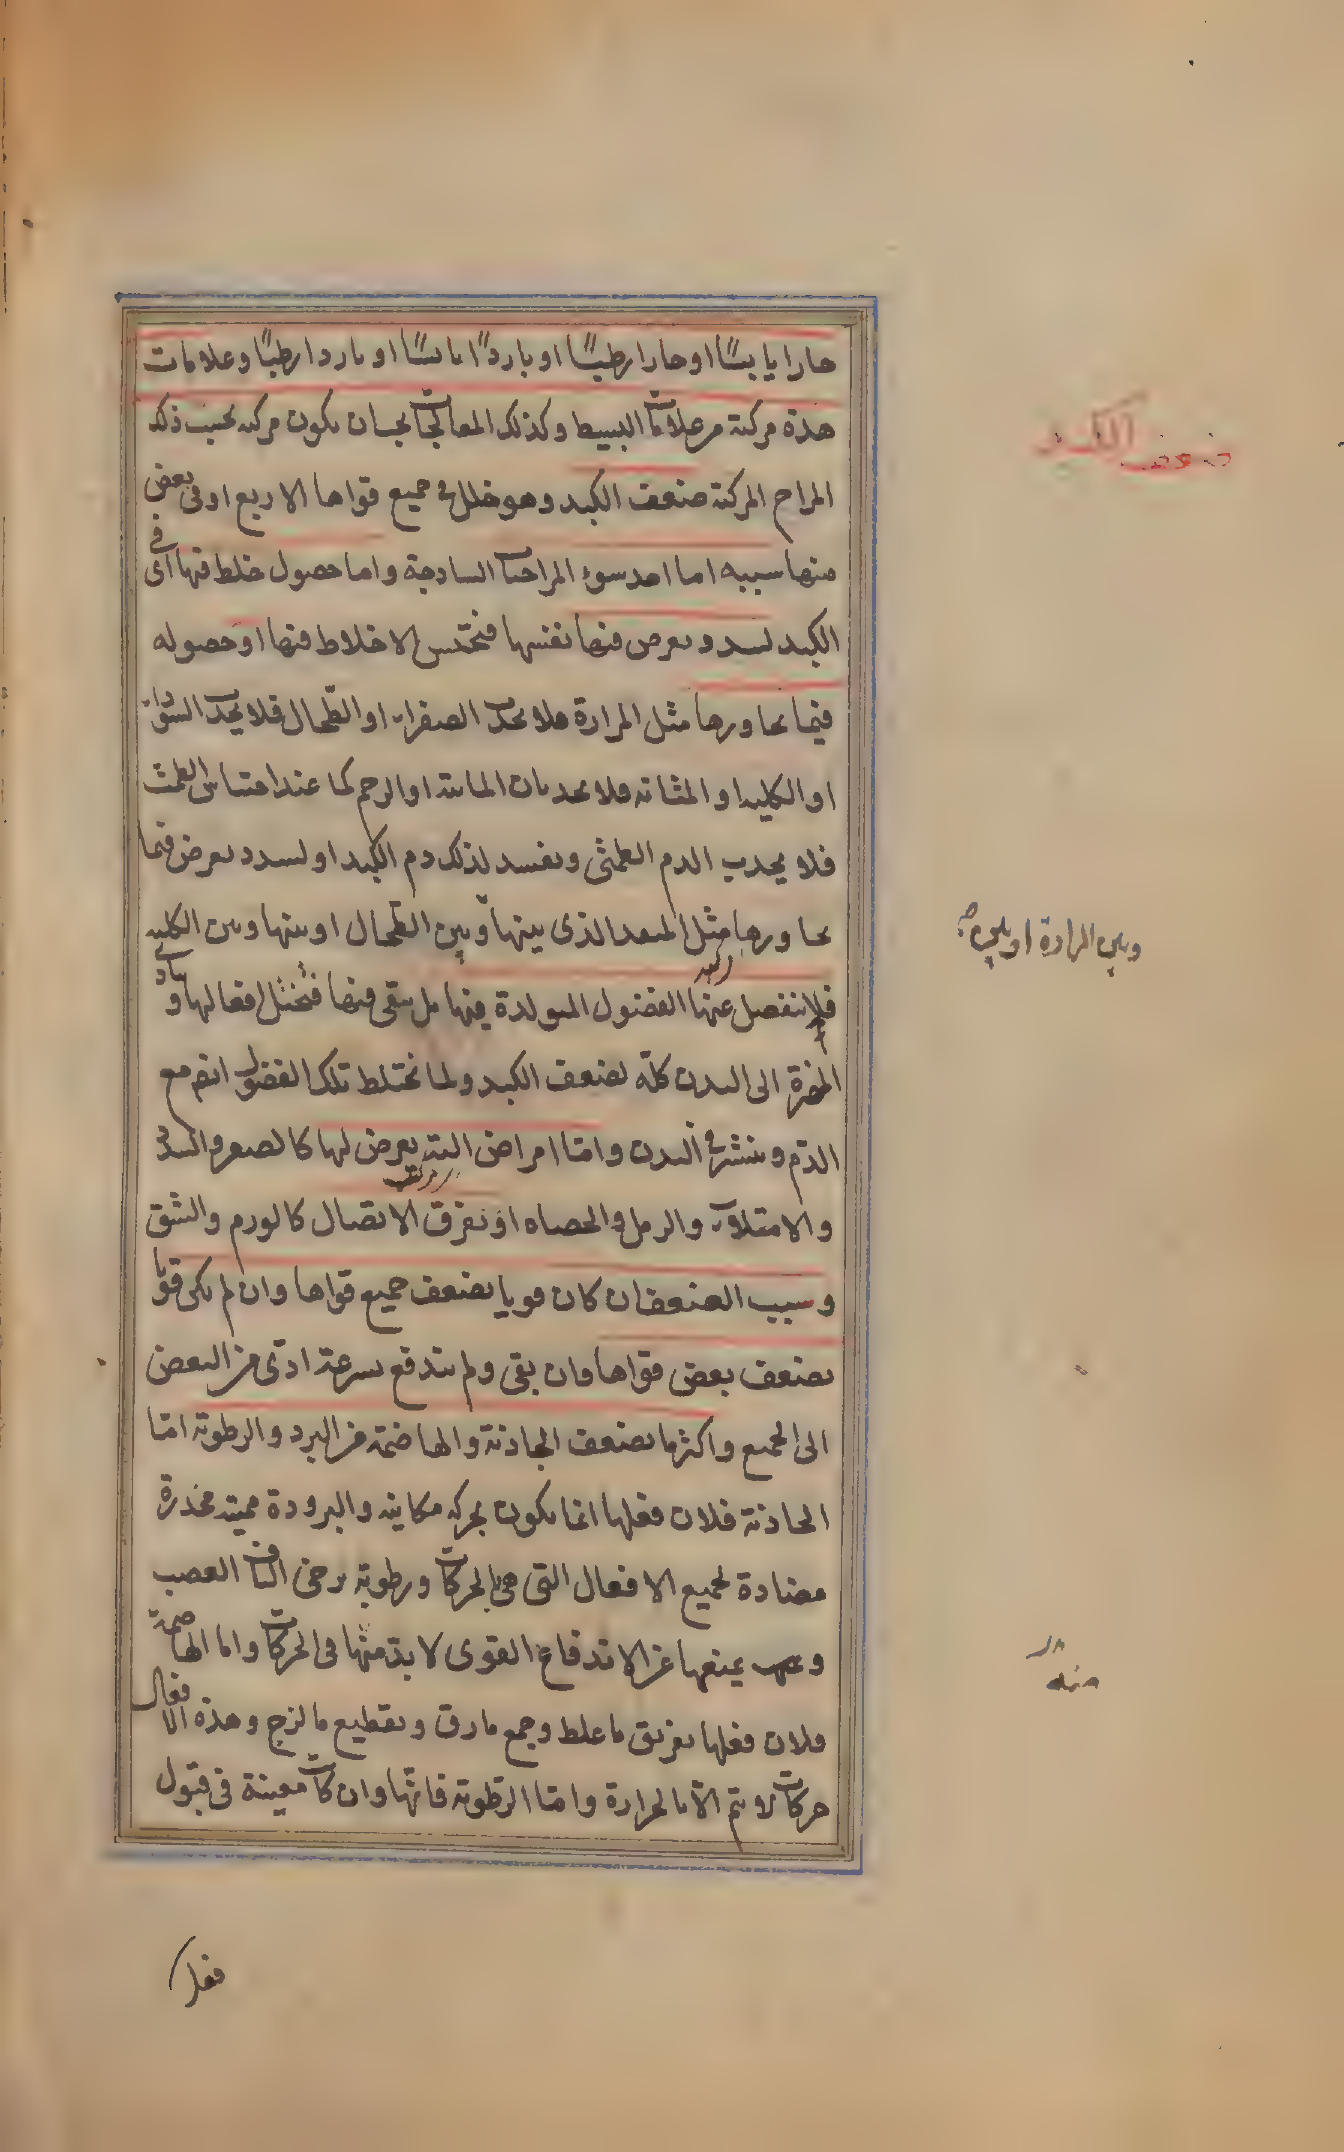 حارا يابسًا او حارا رطبًا او باردًا يابسًا او باردا رطبًا وعلامات
هذه مركبة من علامات البسيط وكذلك المعالجات يجب ان يكون مركبه بحسب ذلك
المزاج المركبة ضعف الكبد وهو خلل في جميع قواها الاربع او في بعض
منها سببه اما احد سوء المزاجات الساذجة واما حصول خلط فيها اى في
الكبد لسدد يعرض فيها نفسها فتحتبس الاخلاط فيها او حصوله
فيما يجاورها مثل المرارة فلا يجذب الصفراء او الطحال فلا يجذب السوداء
او الكليه او المثانه فلا يجذبان المائية او الرحم كما عند احتباس الطمث
فلا يجذب الدم الطمثى ويفسد لذلك دم الكبد او لسدد يعرض فيما
يجاورها مثل المنفذ الذى بينها وبين الطحال او بينها وبين الكليه
فلا تنفصل عنها الفضول المتولدة فيها بل يبقى فيها فتختل افعالها و
المضرة الى البدن كله لضعف الكبد ولما يختلط تلك الفضول ايضا مع
الدم وينتشر في البدن واما امراض الية يعرض لها كالصغر والسدد
والامتلاء والرمل والحصاه او تفرق الاتصال كالورم والشق
وسبب الضعف ان كان قويا يضعف جميع قواها وان لم يكن قويا
يضعف بعض قواها وان بقى ولم يندفع بسرعة ادى من البعض
الى الجميع واكثر ما يضعف الجاذبة والهاضمة من البرد والرطوبة اما
الجاذبة فلان فعلها انما يكون بحركه مكانيه والبرودة مميته مخدرة
مضادة لجميع الافعال التى هى بالحركات ورطوبة يرخى الياف العصب
و يمنعها عن الاندفاع القوى لا بد منها فى الحركات واما الهاضمة
فلان فعلها تفريق ما غلظ وجمع ما رق وتقطيع ما لزج وهذه الافعال
حركات لا يتم الا بالحرارة واما الرطوبة فانها وان كانت معينة فى قبول
فعل
ضعف الكبد
وبين المرارة او بين
منه